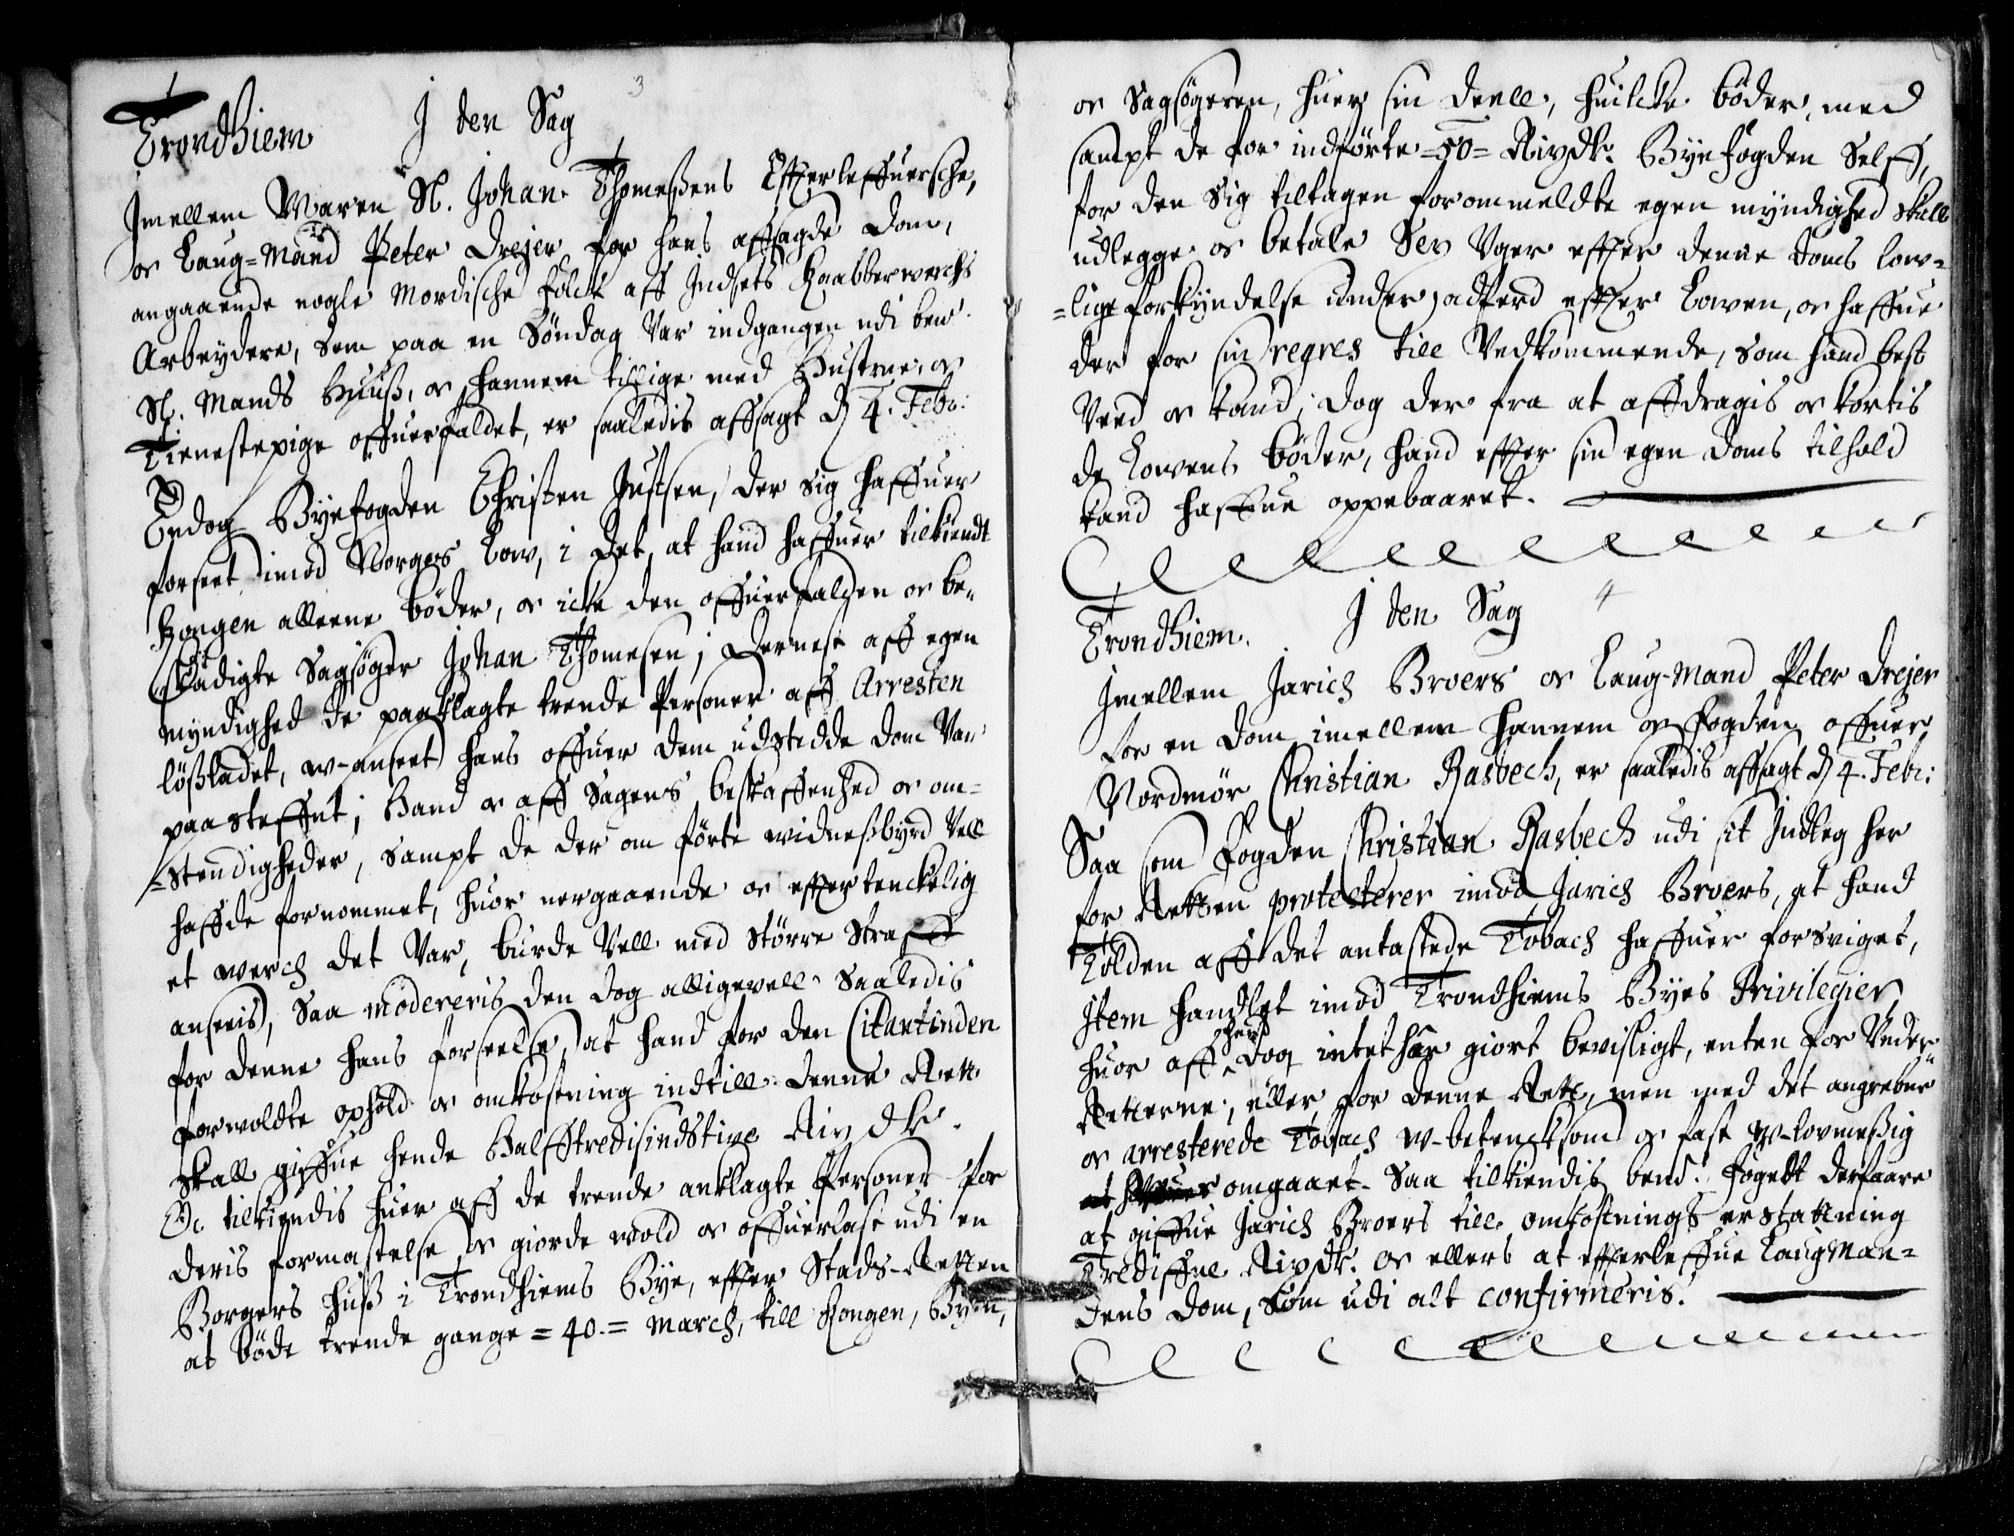 3
Trondhiem J den Sag
Jmellem Maren Sl. Johan Thomeßens Effterleffuersche,
oc Laug-Mand Peter Drejer for hans affsagde Dom,
angaaende nogle Mordische folck aff Indsets Kaabberwerchs
Arbeydere, som paa en Söndag Var indgangen udi bem.
Sl. Mands Huuß, oc hannem tillige med Hustrue oc
Tienestepige offuerfaldet, er saaledis affsagt d 4. Febr:
Endog Byefogden Christen Justsen, der sig haffuer
forseet imod Norges Low, i det, at hand haffuer tilkiendt
Kongen alleene böder, oc icke den offuerfalden oc be-
skadigte Sagsöger Johan Thomesen; Dernest aff egen
myndighed de paaklagte trende Personer aff Arresten
lößladet, w-anseet hans offuer dem udstedde dom Var
paasteffnt; Hand oc aff Sagens beskaffenhed oc om-
-stendigheder, sampt de der om förte widneßbyrd Vell
haffde fornommet, huor nergaaende oc effterteнckelig
et werch det Var, burde Vell med större Straff
anseeis, Saa modereris den dog alligevell Saaledis
for denne hans forseelse, at hand for den Citantinden
forwoldte ophold oc omkostning indtill denne Rett
skall giffue hende Halfftredisindstive Rix dlr.
Oc tilkiendis huer aff de trende anklagte Personer for
deris formastelse oc giorde wold oc offuerlast udi en
Borgers huß i Trondhiems Bye, effter Stads-Retten
at böde trende gange = 40. = March, till Kongen, Byen,
oc Sagsögeren, huer sin deell, huilcke böder, med
sampt de for indförte = 50 = Rixdlr. Byefogden Selff,
for den Sig tiltagen forommeldte egen myndighed skall
udlegge oc betale Sex Vger effter denne doms low-
-lige forkyndelse under adferd effter Lowen, oc haffue
der for sin regres till Vedkommende, som hand best
Veed oc kand; dog der fra at affdragis oc kortis
de Lowens böder, hand effter sin egen doms tilhold
kand haffue oppebaaret.
4
Trondhiem. J den Sag
Jmellem Jarich Broers oc Laug-Mand Peter Drejer
for en Dom imellem hannem oc fogden offuer
Nordmör Christian Rasbech, er saaledis affsagt d 4. Febr:
Saa som Fogden Christian Rasbech udi sit Indleg her
for Retten protesterer imod Jarich Broers, at hand
Tolden aff det antastede Tobach haffuer forsviget,
Item handlet imod Trondhiems Byes Privilegier,
huor aff hand dog intet har giort bevisligt, enten for Under
Retterne, eller for denne Rett, men med det angrebne
oc arresterede Tobach w-betencksom oc fast w-lovmeßig
omgaaet. Saa tilkiendis bemd. foged derfaare
at giffue Jarich Broers till omkostnings erstattning
Trediffue Rixdlr. oc ellers at effterleffue Laugman-
dens Dom, som udi alt confirmeris.